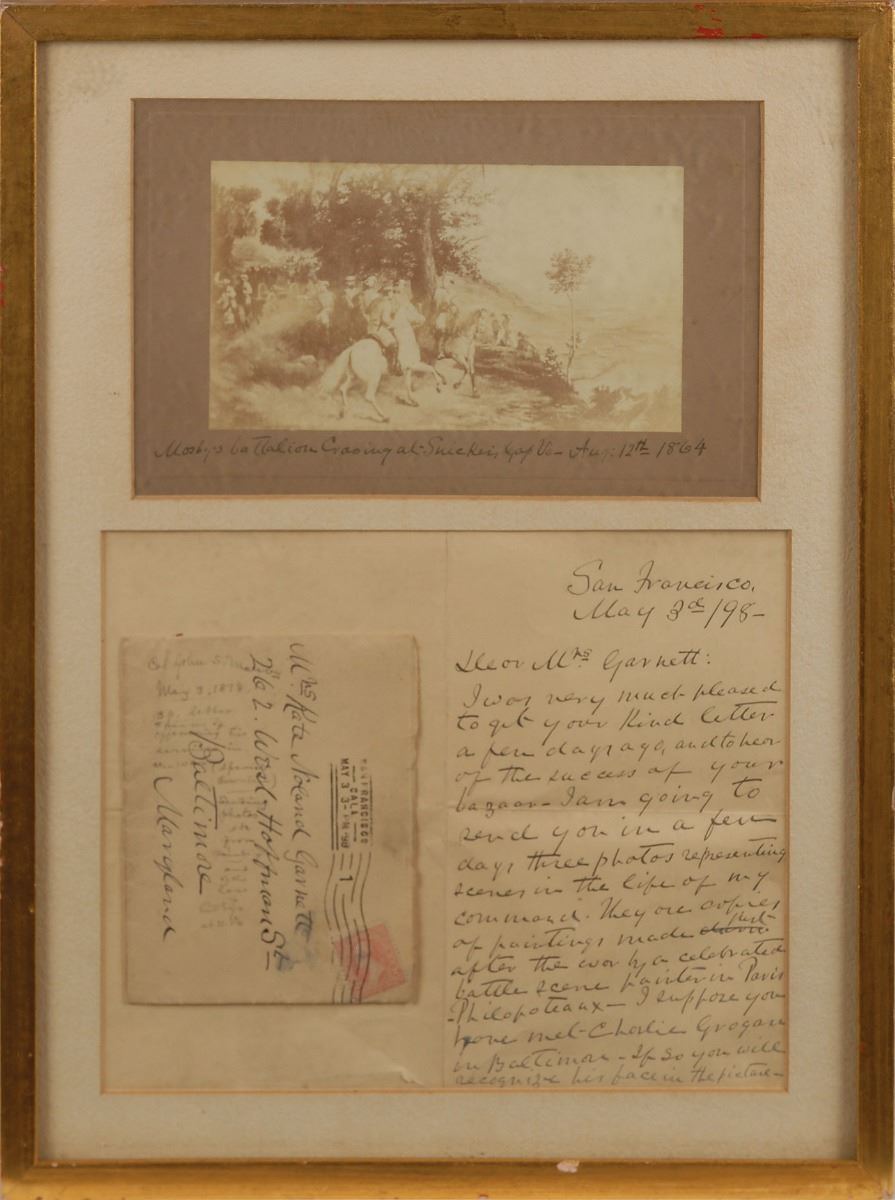 Mosby's battalion Crossing at Snickers Gap Va— Aug: 12th 1864
San Francisco,
May 3d /98—
Dear Mrs Garnett:
I was very much pleased
to get your kind letter
a few days ago, and to hear
of the success of your
bazaar— I am going to
send you in a few
days three photos representing
scenes in the life of my
command. They are copies
of paintings made just
after the war by a celebrated
battle scene painter in Paris
-Philopoteaux— I suppose you
have met Charlie Grogan
in Baltimore— If so you will
recognize his face in the picture—
Mrs Kate Noland Garnett
262. West Hoffman St
Baltimore
Maryland
SAN FRANCISCO
CALA
MAY 3 3-PM '98
1
Col John S.
May 3, 1898
letter